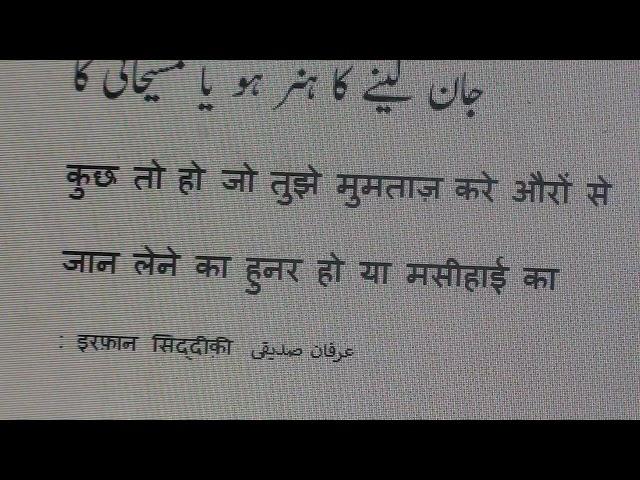 جان لینے کا ہنر ہو یا مسیحائی کا
कुछ तो हो जो तुझे मुमताज़ करे औरों से
जान लेने का हुनर हो या मसीहाई का
: इरफ़ान सिद्दीक़ी عرفان صدیقی